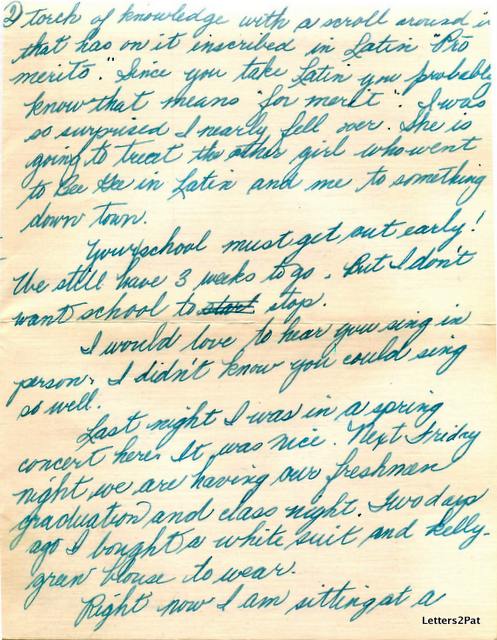 2) torch of knowledge with a scroll around it
that has on it inscribed in Latin "Pro
merito." Since you take Latin you probably
know that means "for merit". I was
so surprised I nearly fell over. She is
going to treat the other girl who went
to Bee Gee in Latin and me to something
down town.
Your school must get out early!
We still have 3 weeks to go. But I don't
want school to start stop.
I would love to hear you sing in
person. I didn't know you could sing
so well.
Last night I was in a spring
concert here. It was nice. Next Friday
night we are having our freshman
graduation and class night. Two days
ago I bought a white suit and Kelly-
green blouse to wear.
Right now I am sitting at a
Letters2Pat